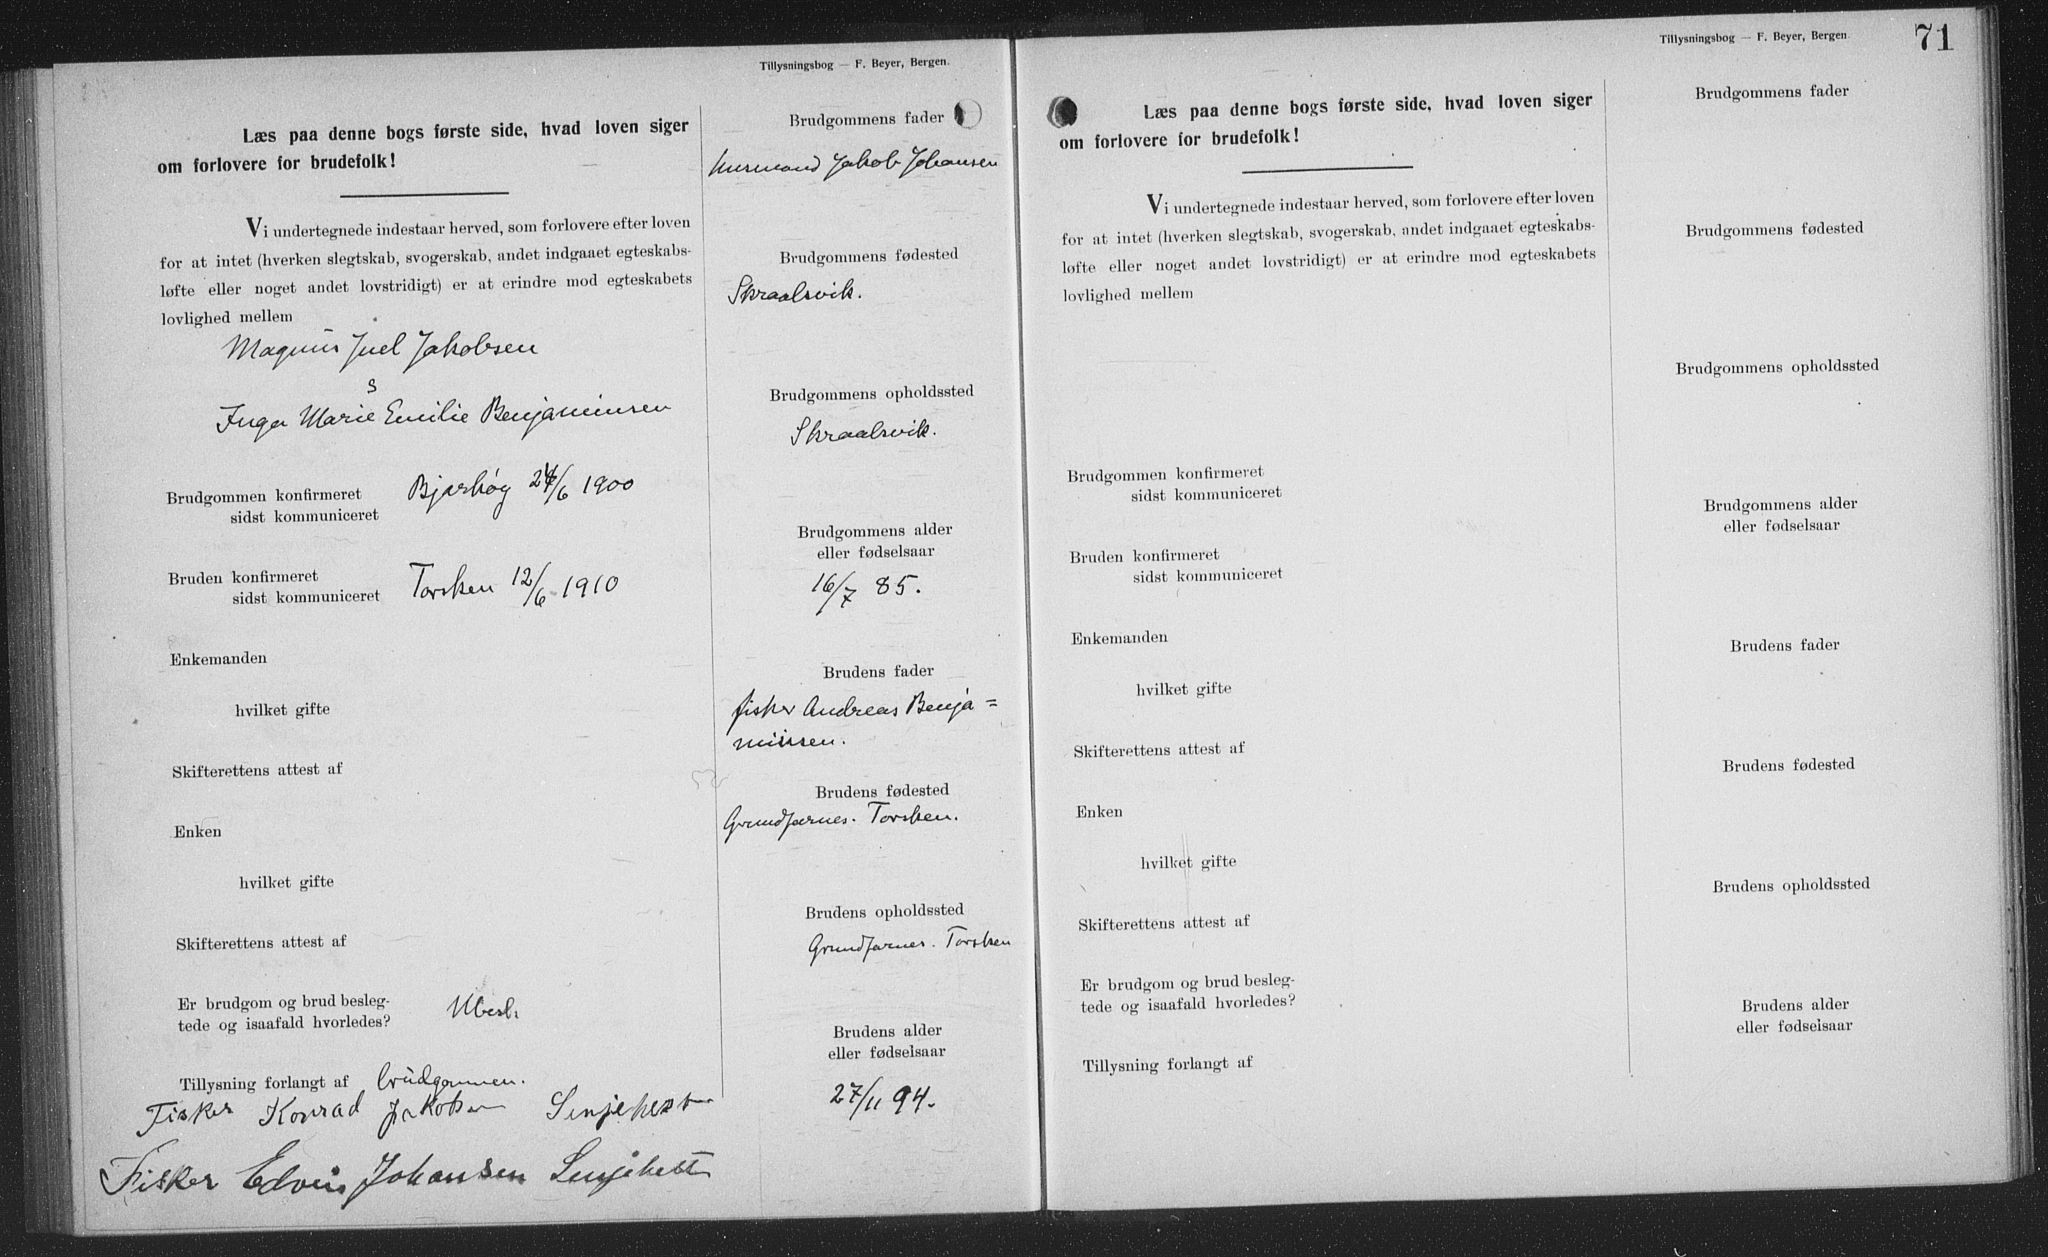 Tillysningsbog — F. Beyer, Bergen.
Læs paa denne bogs første side, hvad loven siger
om forlovere for brudefolk!
Vi undertegnede indestaar herved, som forlovere efter loven
for at intet (hverken slegtskab, svogerskab, andet indgaaet egteskabs-
løfte eller noget andet lovstridigt) er at erindre mod egteskabets
lovlighed mellem
Magnus Juel Jakobsen
&
Inga Marie Emilie Benjaminsen
Brudgommen konfirmeret Bjarkøy 24/6 1900
sidst kommuniceret
Bruden konfirmeret Torsken 12/6 1910
sidst kommuniceret
Enkemanden
hvilket gifte
Skifterettens attest af
Enken
hvilket gifte
Skifterettens attest af
Er brudgom og brud besleg-
tede og isaafald hvorledes? Ubesl.
Tillysning forlangt af brudgommen.
Fisker Konrad Jakobsen Senjehest
Fisker Edvin Johansen Senjehest
Brudgommens fader
husmand Jakob Johansen
Brudgommens fødested
Skraalsvik.
Brudgommens opholdssted
Skraalsvik.
Brudgommens alder
eller fødselsaar
16/7 85.
Brudens fader
fisker Andreas Benja=
minsen.
Brudens fødested
Grundfarnes. Torsken.
Brudens opholdssted
Grundfarnes. Torsken
Brudens alder
eller fødselsaar
27/11 94.
Tillysningsbog — F. Beyer, Bergen.
71
Læs paa denne bogs første side, hvad loven siger
om forlovere for brudefolk!
Vi undertegnede indestaar herved, som forlovere efter loven
for at intet (hverken slegtskab, svogerskab, andet indgaaet egteskabs-
løfte eller noget andet lovstridigt) er at erindre mod egteskabets
lovlighed mellem
Brudgommen konfirmeret
sidst kommuniceret
Bruden konfirmeret
sidst kommuniceret
Enkemanden
hvilket gifte
Skifterettens attest af
Enken
hvilket gifte
Skifterettens attest af
Er brudgom og brud besleg-
tede og isaafald hvorledes?
Tillysning forlangt af
Brudgommens fader
Brudgommens fødested
Brudgommens opholdssted
Brudgommens alder
eller fødselsaar
Brudens fader
Brudens fødested
Brudens opholdssted
Brudens alder
eller fødselsaar